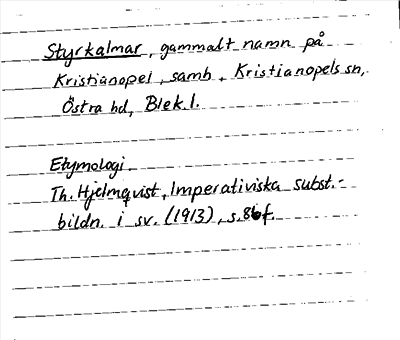 Styrkalmar, gammalt namn på
Kristianopel, samh., Kristianopels sn,
Östra hd, Blek. l.
Etymologi.
Th. Hjelmqvist, Imperativiska subst.-
bildn. i sv. (1913), s. 86f.